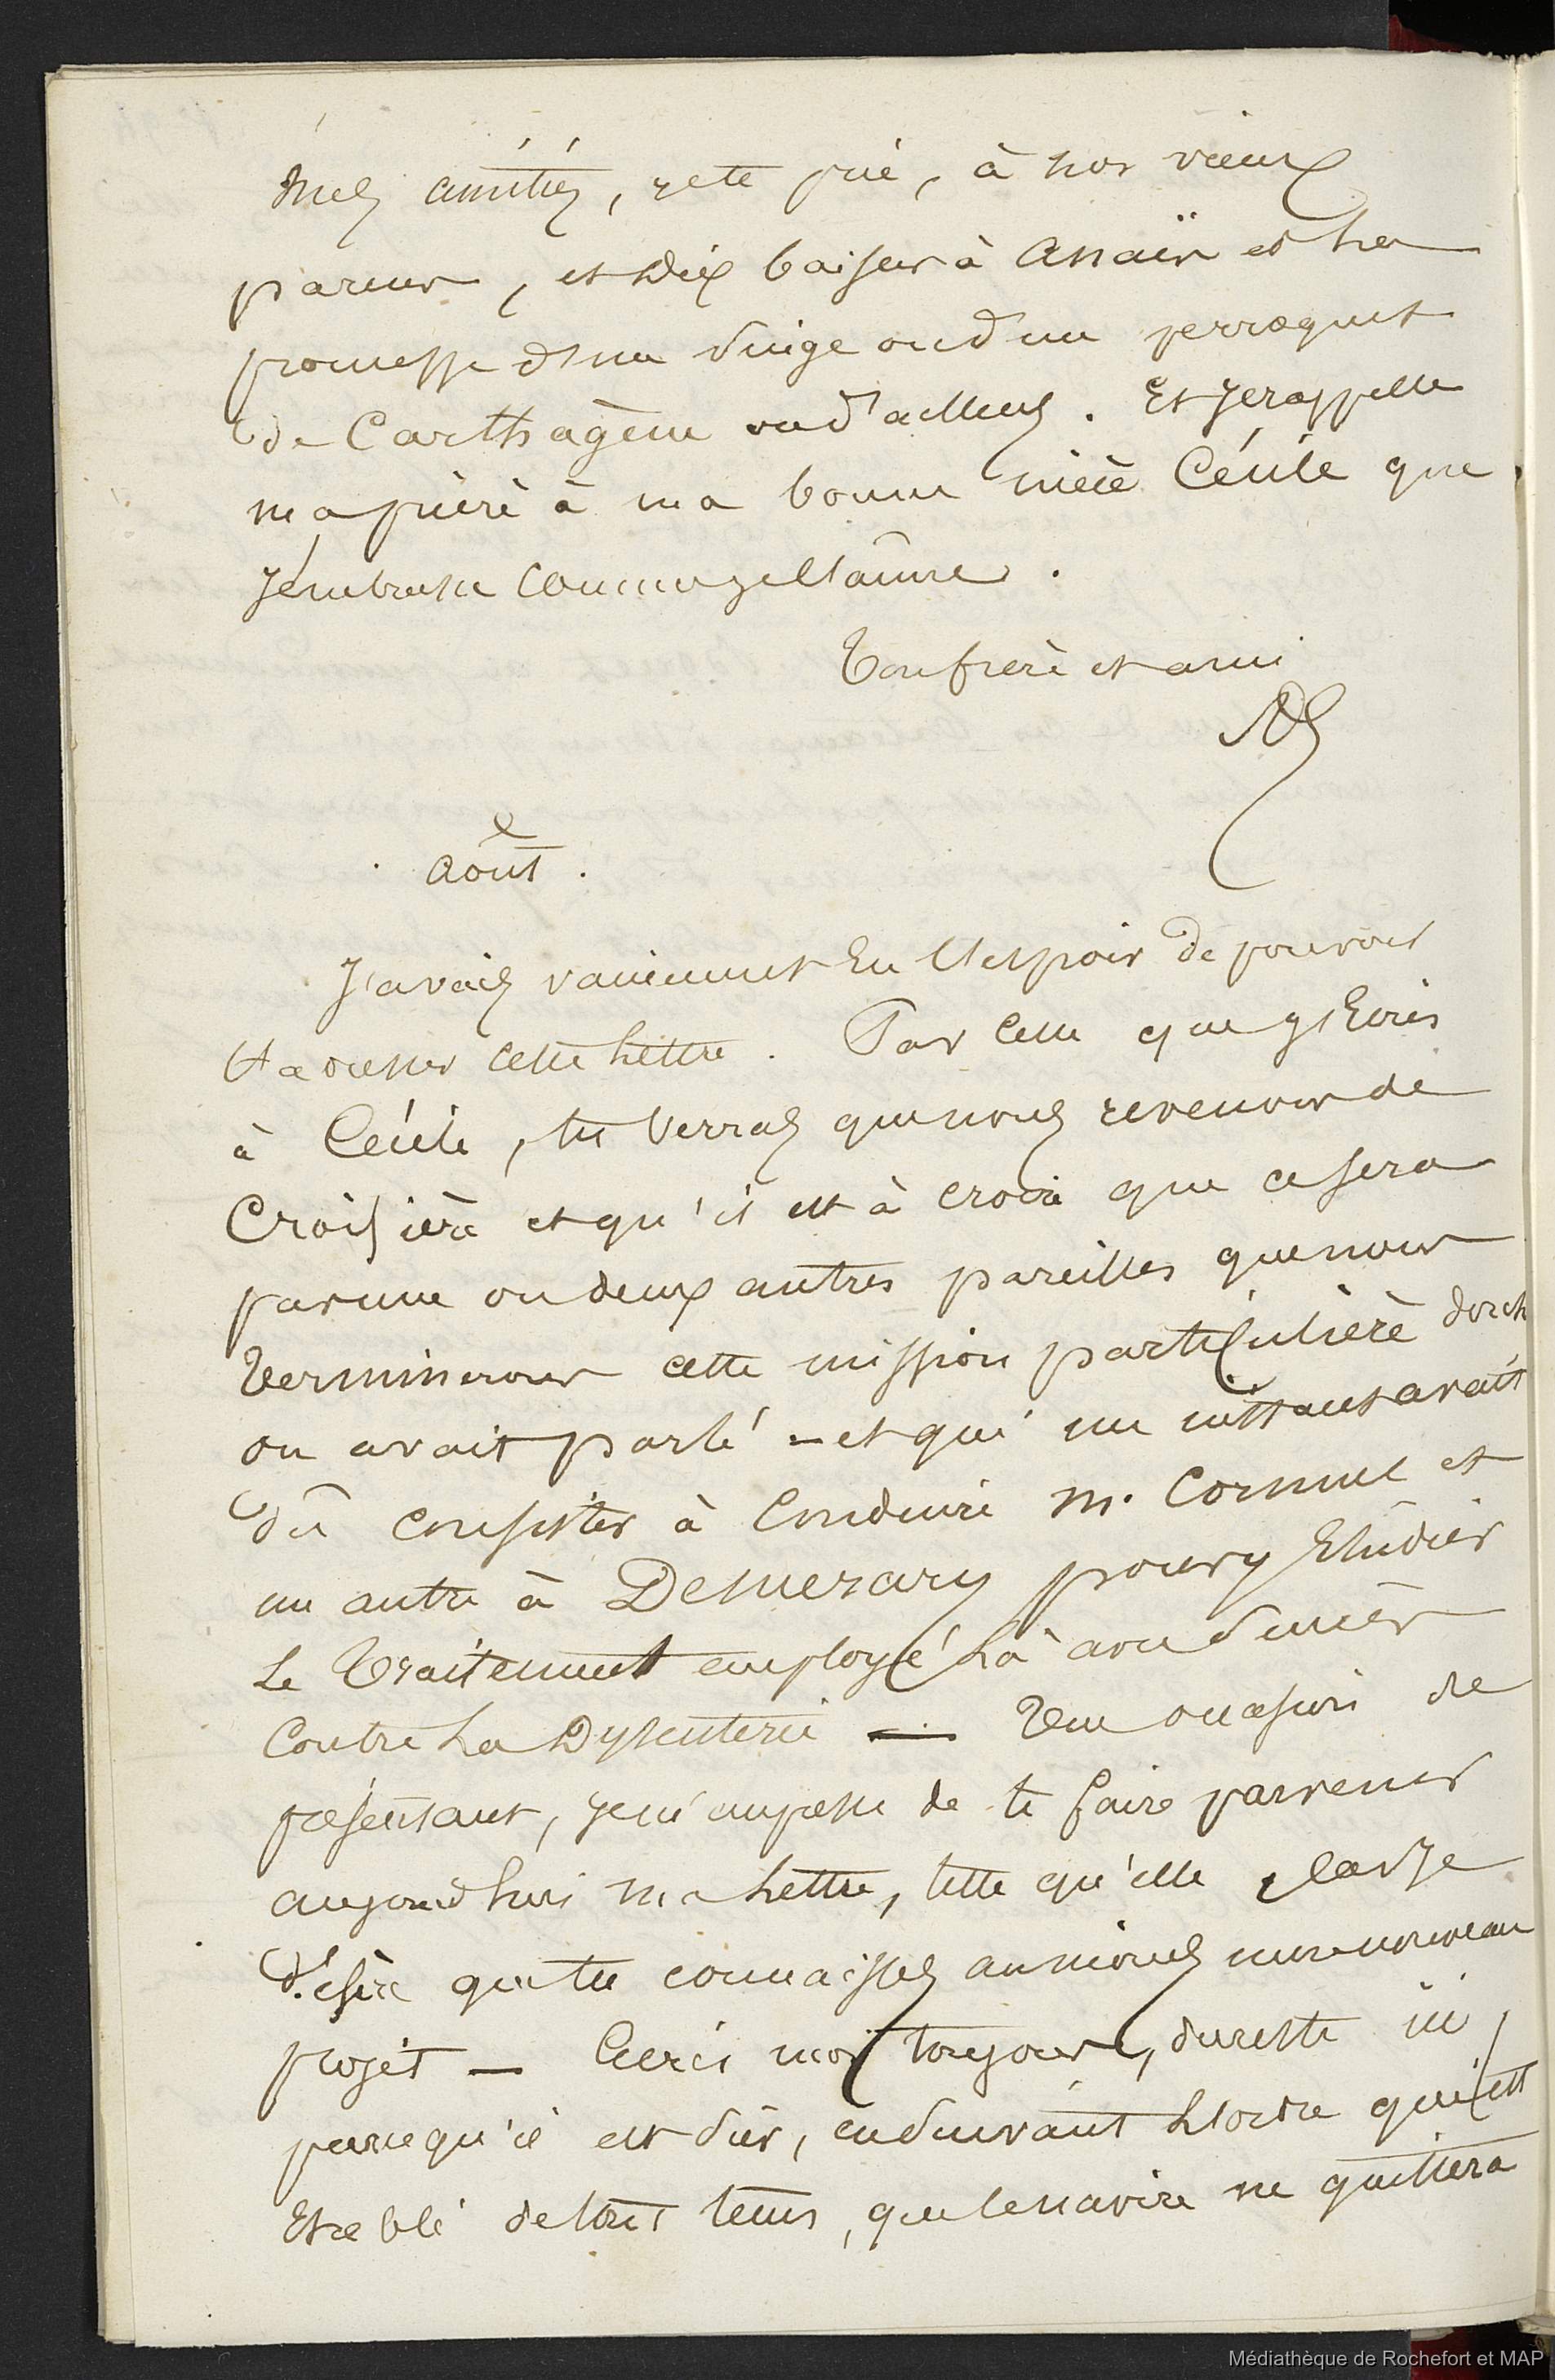 Mes amitiés, je te prie, à nos vieux
parens, et dix baisers à Anaïs et la
promesse d'un singe ou d'un perroquet
de Carthagène ou d'ailleurs. Et je rappelle
ma prière à ma bonne nièce Cécile que
j'embrasse comme je l'aime.
Ton frère et ami
Août.
J'avais vainement eu l'espoir de pouvoir
t'adresser cette lettre. Par celle que j'écris
à Cécile, tu verras que nous revenons de
croisière et qu'il est à croire que ce sera
par une ou deux autres pareilles que nous
terminerons cette mission particulière dont
on avait parlé - et qui un instant avait
dû consister à conduire M. Cornuel et
un autre à Demerary pour y étudier
le traitement employé là avec succès
contre la dysenterie — Une occasion se
présentant, je m'empresse de te faire parvenir
aujourd'hui ma lettre, telle qu'elle, car je
désire que tu connaisses au moins mon nouveau
projet — Ecris moi toujours, du reste ici,
parcequ'il est sûr, en suivant l'ordre qui est
établi de tout tems, que le navire ne quittera
Médiathèque de Rochefort et MAP